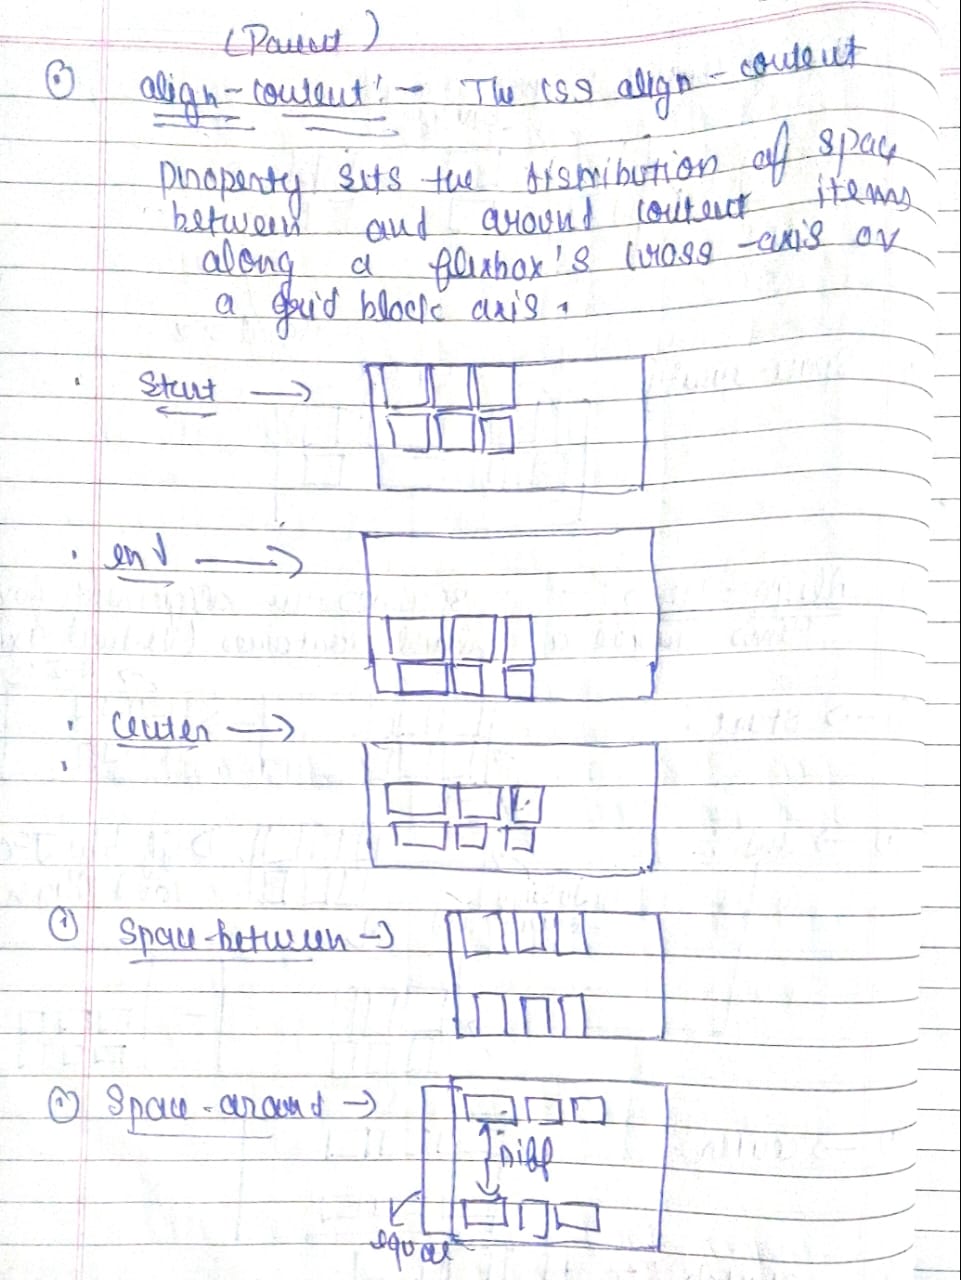 (Parent)
align-content :- The CSS align-content
property sets the distribution of space
between and around content items
along a flexbox's cross-axis or
a grid block axis.
Start →
end →
Center →
① Space-between →
② Space-around →
Diff
equal